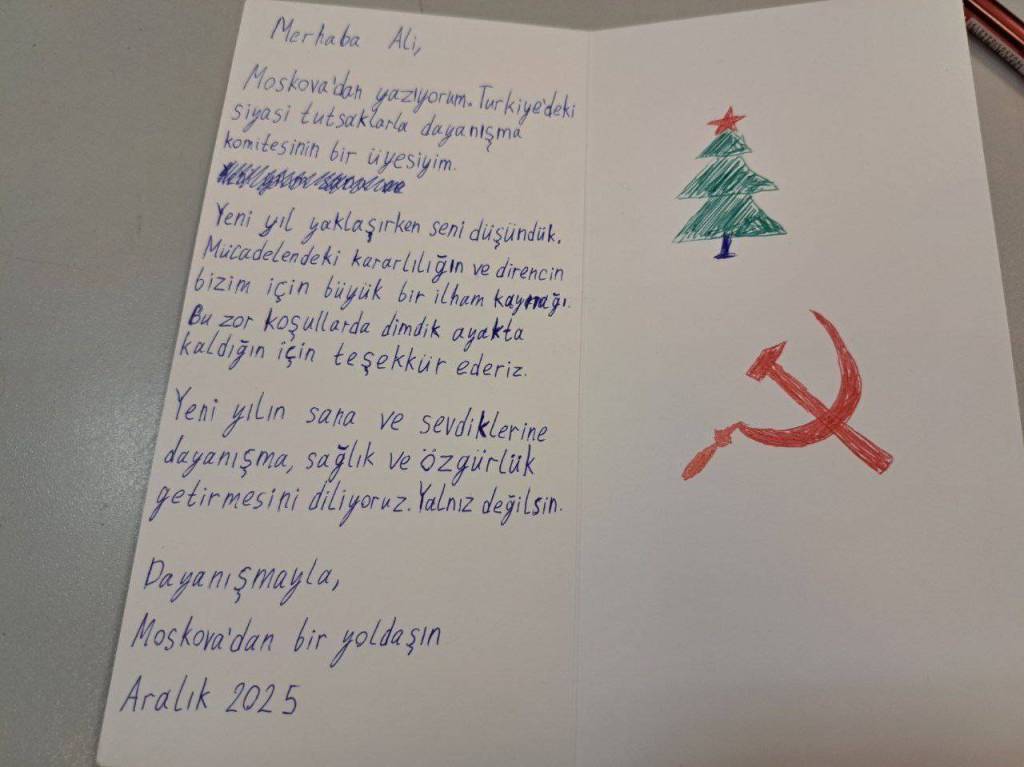 Merhaba Ali,
Moskova'dan yazıyorum. Turkiye'deki
siyasi tutsaklarla dayanışma
komitesinin bir üyesiyim.
Yeni yıl yaklaşırken seni düşündük.
Mücadelendeki kararlılığın ve direncin
bizim için büyük bir ilham kaynağı.
Bu zor koşullarda dimdik ayakta
kaldığın için teşekkür ederiz.
Yeni yılın sana ve sevdiklerine
dayanışma, sağlık ve özgürlük
getirmesini diliyoruz. Yalnız değilsin.
Dayanışmayla,
Moskova'dan bir yoldaşın
Aralık 2025